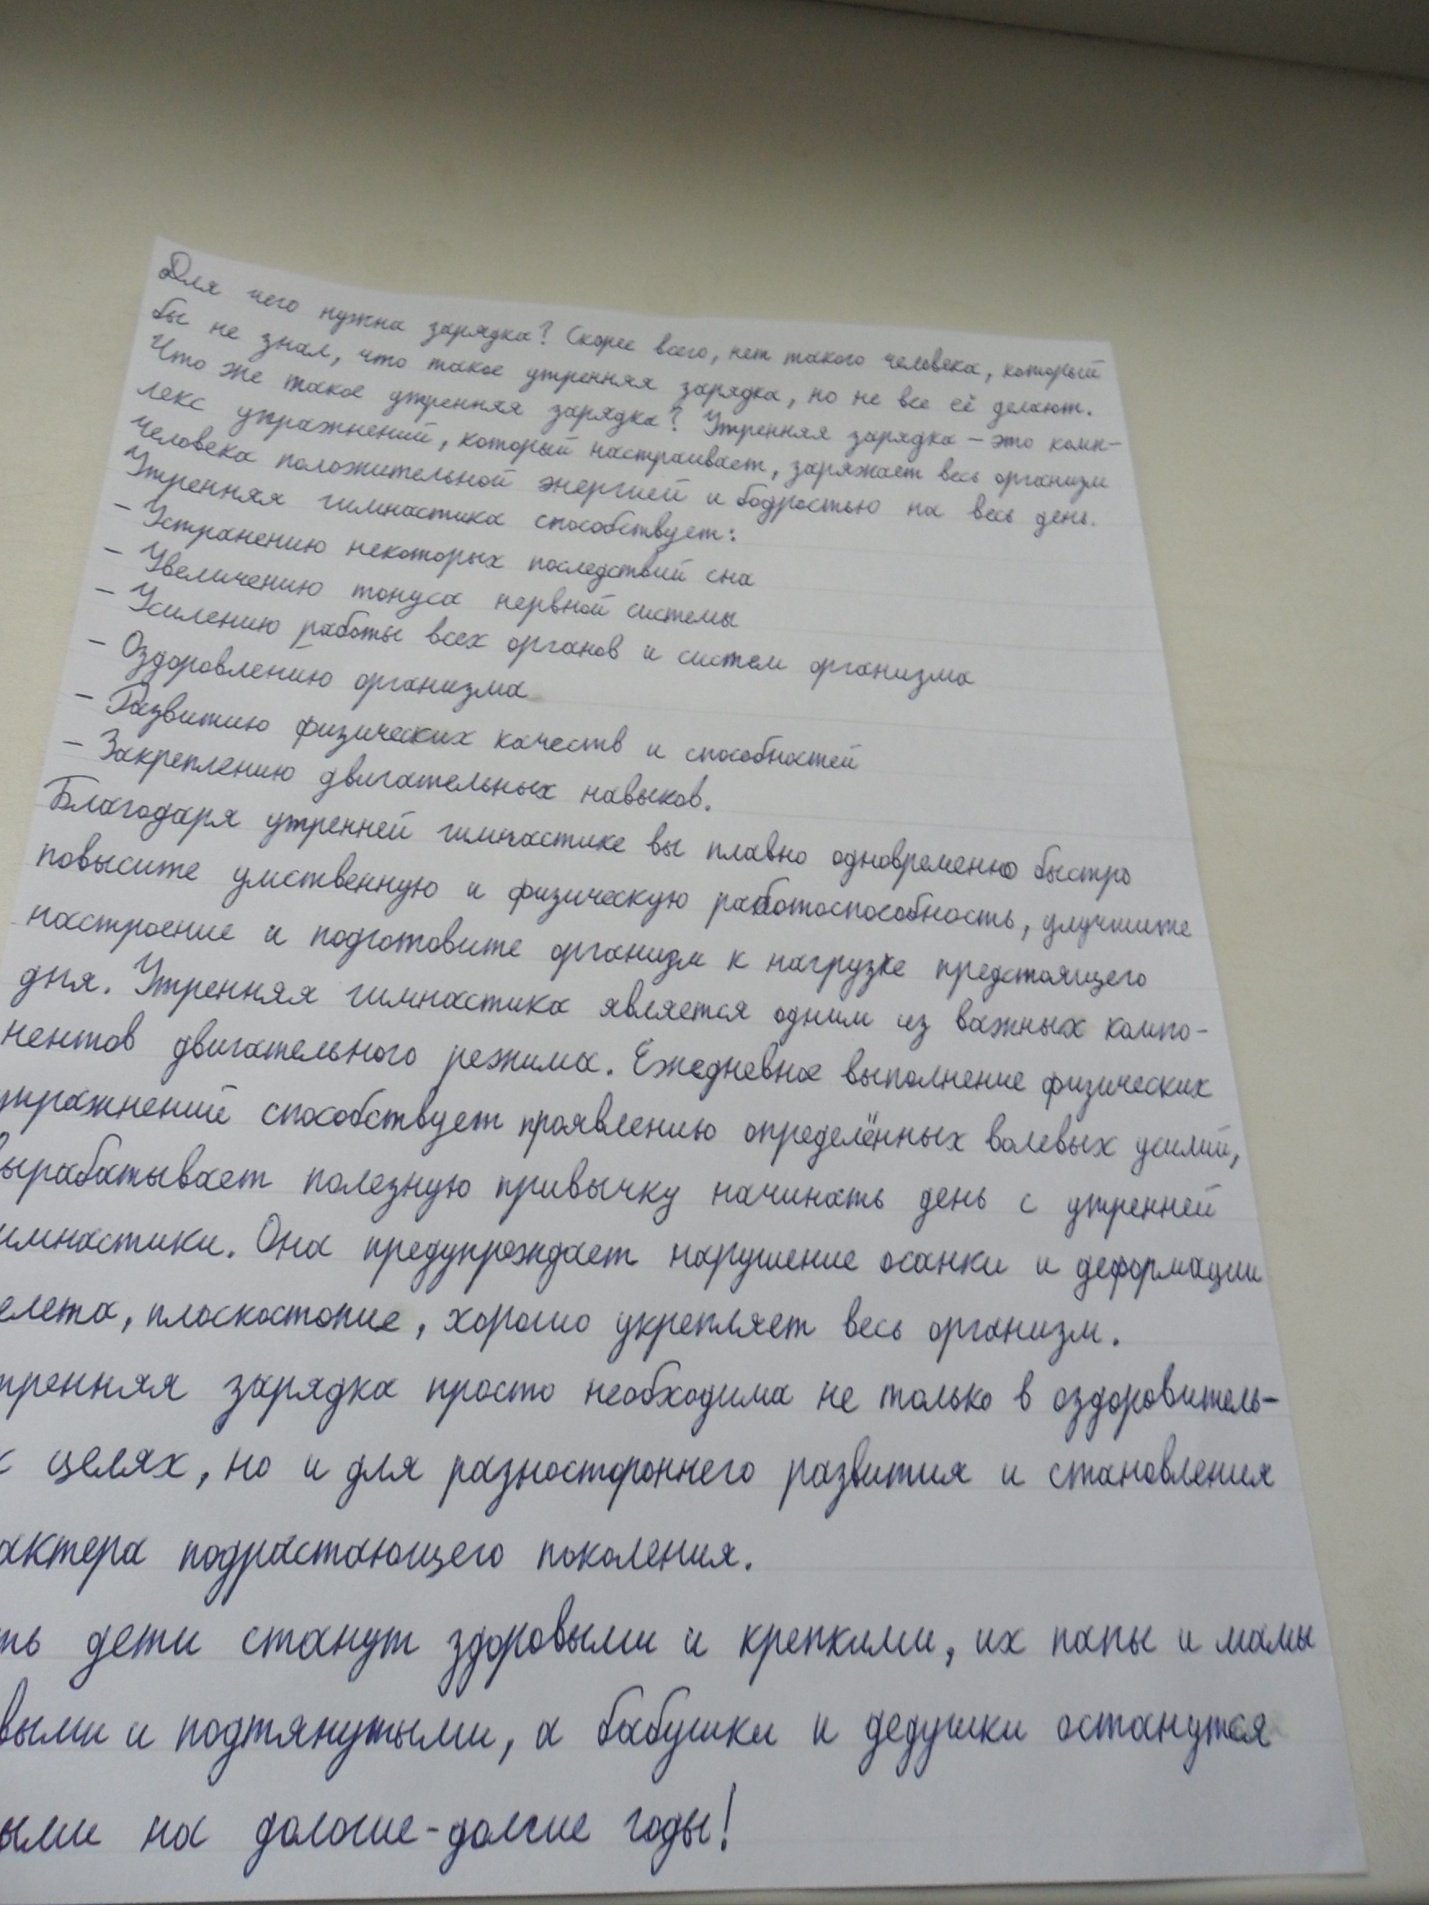 Для чего нужна зарядка? Скорее всего, нет такого человека, который
бы не знал, что такое утренняя зарядка, но не все её делают.
Что же такое утренняя зарядка? Утренняя зарядка – это комп-
лекс упражнений, который настраивает, заряжает весь организм
человека положительной энергией и бодростью на весь день.
Утренняя гимнастика способствует:
– Устранению некоторых последствий сна
– Увеличению тонуса нервной системы
– Усилению работы всех органов и систем организма
– Оздоровлению организма
– Развитию физических качеств и способностей
– Закреплению двигательных навыков.
Благодаря утренней гимнастике вы плавно одновременно быстро
повысите умственную и физическую работоспособность, улучшите
настроение и подготовите организм к нагрузке предстоящего
дня. Утренняя гимнастика является одним из важных компо-
нентов двигательного режима. Ежедневное выполнение физических
упражнений способствует проявлению определённых волевых усилий,
вырабатывает полезную привычку начинать день с утренней
имнастики. Она предупреждает нарушение осанки и деформации
елета, плоскостопие, хорошо укрепляет весь организм.
тренняя зарядка просто необходима не только в оздоровитель-
х целях, но и для разностороннего развития и становления
актера подрастающего поколения.
ть дети станут здоровыми и крепкими, их папы и мамы
выми и подтянутыми, а бабушки и дедушки останутся
ыми на долгие-долгие годы!